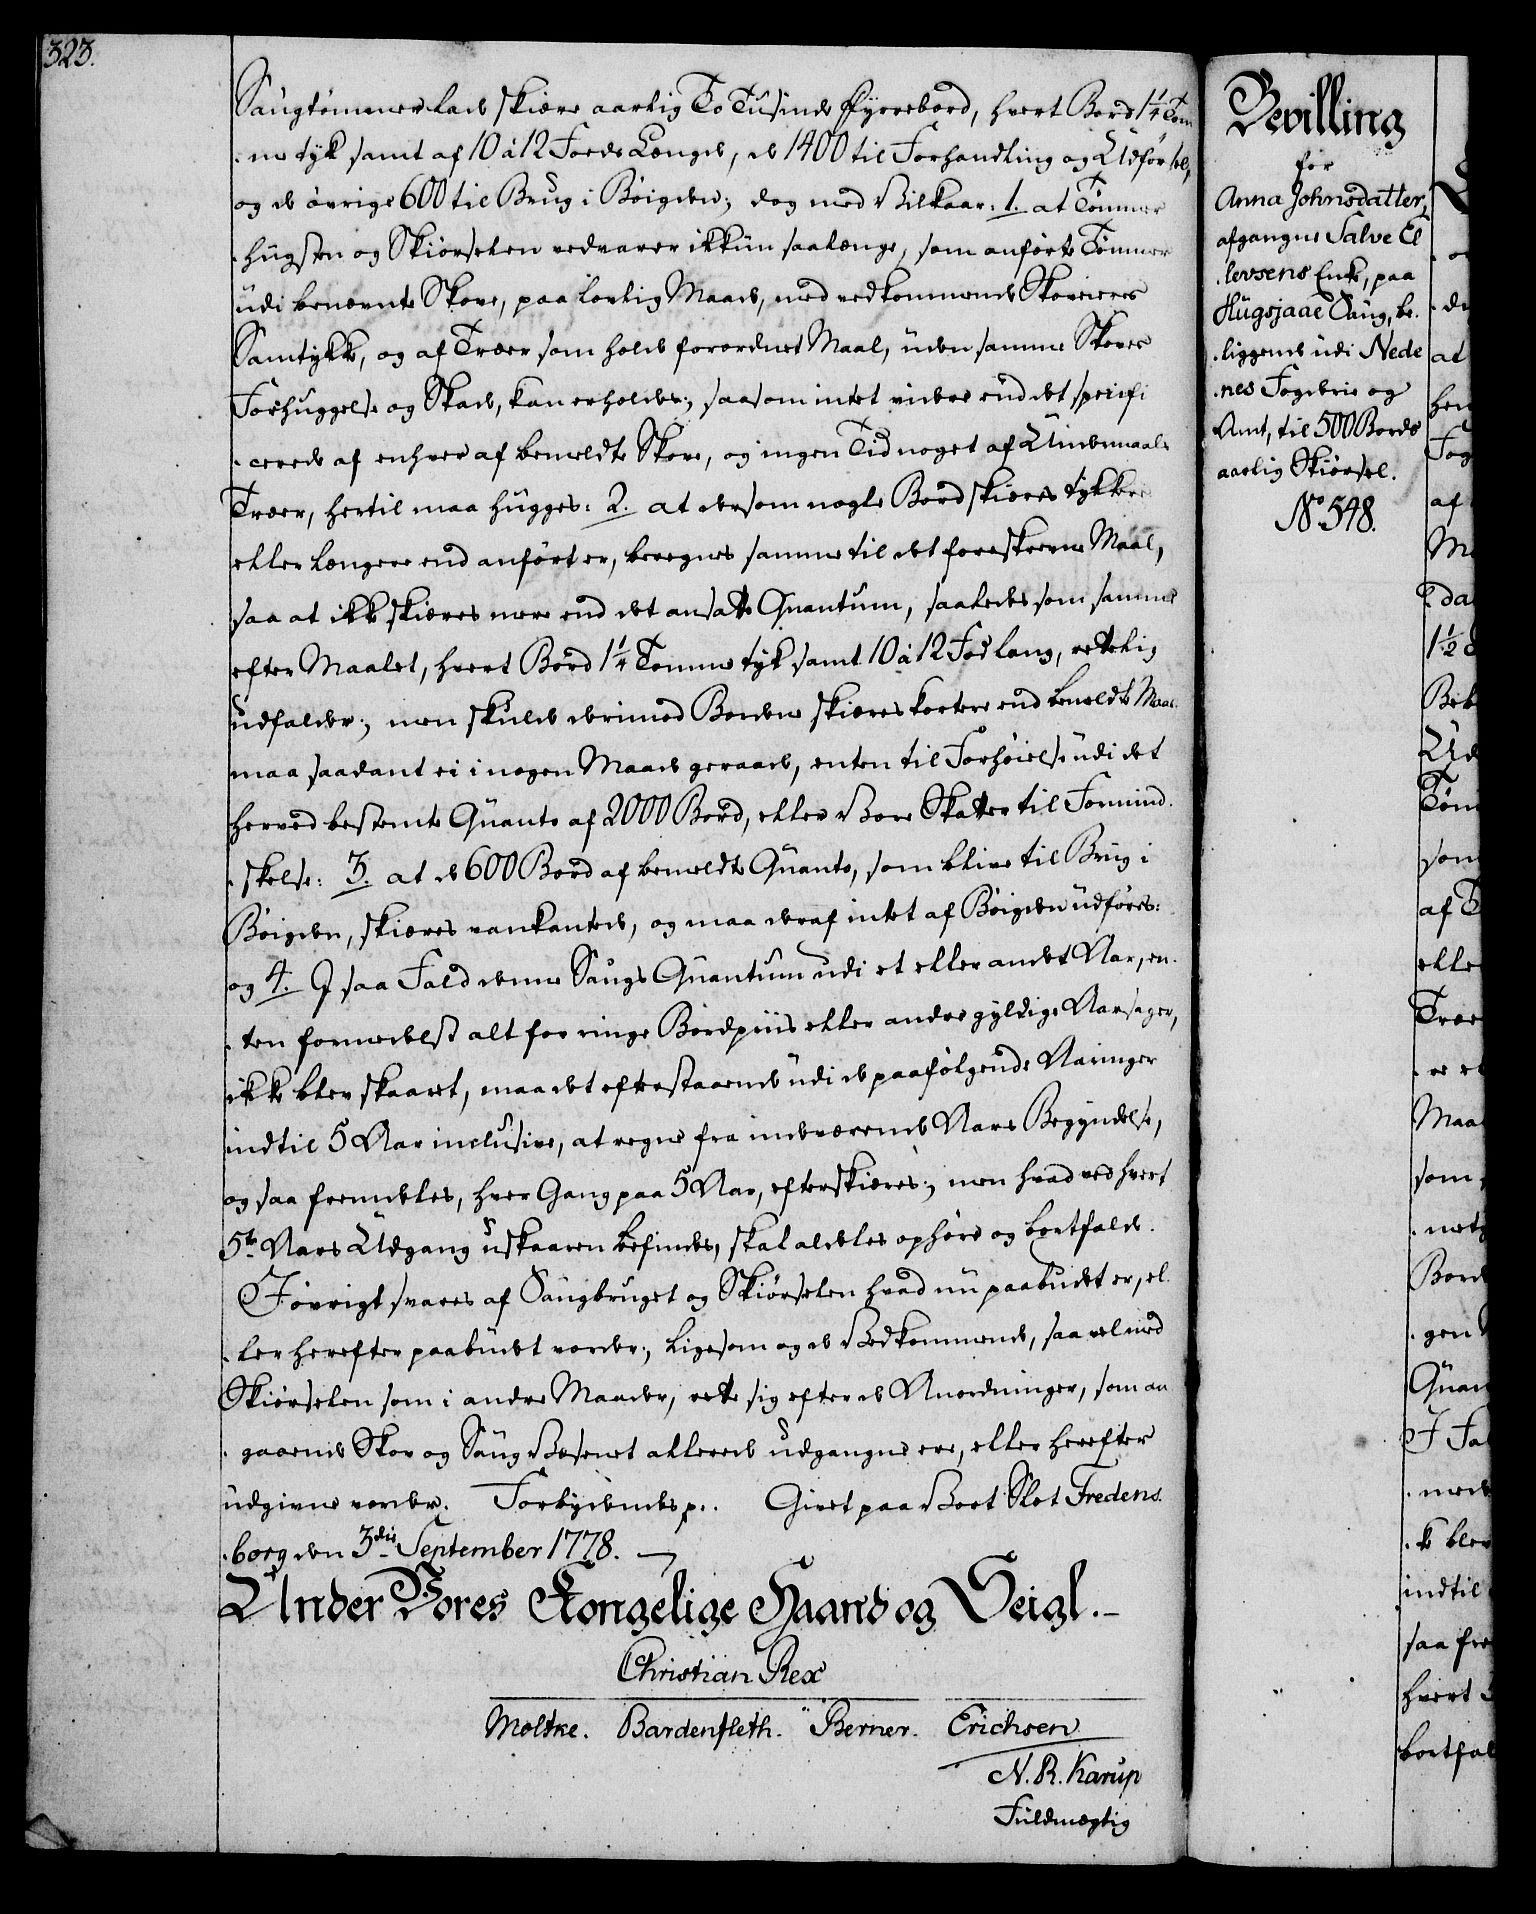 323.
Saugtømmer lade skiære aarlig To Tusinde Fyrrebord, hvert Bord 1 1/4 Tom
. me tyk samt af 10 à 12 Fods Længde, de 1400 til Forhandling og Udførsel,
og de øvrige 600 til Brug i Bøigden; dog med Vilkaar: 1. at Tømmer
. hugsten og Skiørselen vedvarer ikkun saalænge, som anførte Tømmer
udi benævnte Skove, paa lovlig Maade, med vedkommende Skoveieres
Samtykke, og af Træer som holde forordnet Maal, uden samme Skoves
Forhuggelse og Skade, kan erholdes; saasom intet videre end det specifi
. cerede af enhver af bemeldte Skove, og ingen Tid noget af Undermaals
Træer, hertil maa hugges: 2. at dersom nogle Bord skiæres tykkere
eller længere end anført er, beregnes samme til det foreskrevne Maal,
saa at ikke skiæres mere end det ansatte Quantum, saaledes som samme
efter Maalet, hvert Bord 1 1/4 Tomme tyk samt 10 à 12 Fod lang, rettelig
udfalder; men skulde derimod Bordene skiæres kortere end bemeldte Maal
maa saadant ei i nogen Maade geraade, enten til Forhøielse udi det
herved bestemte Quanto af 2000 Bord, eller Vore Skatter til Formind.
. skelse: 3. at de 600 Bord af bemeldte Quanto, som blive til Brug i
Bøigden, skiæres vankantede, og maa deraf intet af Bøigden udføres:
og 4. I saa Fald denne Saugs Quantum udi et eller andet Aar, en.
. ten formedelst alt for ringe Bordpriis eller andre gyldige Aarsager,
ikke blev skaaret, maa det efterstaaende udi de paafølgende Aaringer
indtil 5 Aar inclusive, at regne fra indeværende Aars Begyndelse,
og saa fremdeles, hver Gang paa 5 Aar, efterskiæres; men hvad ved hvert
5te Aars Udgang uskaaren befindes, skal aldeles ophøre og bortfalde.
Iøvrigt svares af Saugbruget og Skiørselen hvad nu paabudet er, el.
. ler herefter paabudet vorder; ligesom og de Vedkommende, saavel med
Skiørselen som i andre Maader, rette sig efter de Anordninger, som an
. gaaende Skov og Saug Væsenet allerede udgangne ere, eller herefter
udgivne vorder. Forbydendes p.. Givet paa Vort Slot Fredens.
. borg den 3die September 1778.
Under Vores Kongelige Haand og Seigl.
Christian Rex
Moltke. Bardenfleth. Berner. Erichsen
N. R. Karup
Fuldmægtig
Bevilling
for
Anna Johnsdatter,
afgangne Salve El
. levsens Enke, paa
Hugsjaae Saug, be.
. liggende udi Nede
. nes Fogderie og
Amt, til 500 Bords
aarlig Skiørsel.
No 548.
at
af
1 1/2
Tøm
som
af T
elle
Træe
Maa
som
Bord
. gen
Quan
I Fal
. k blev
indtil
saa fre
hvert 5
bortfal